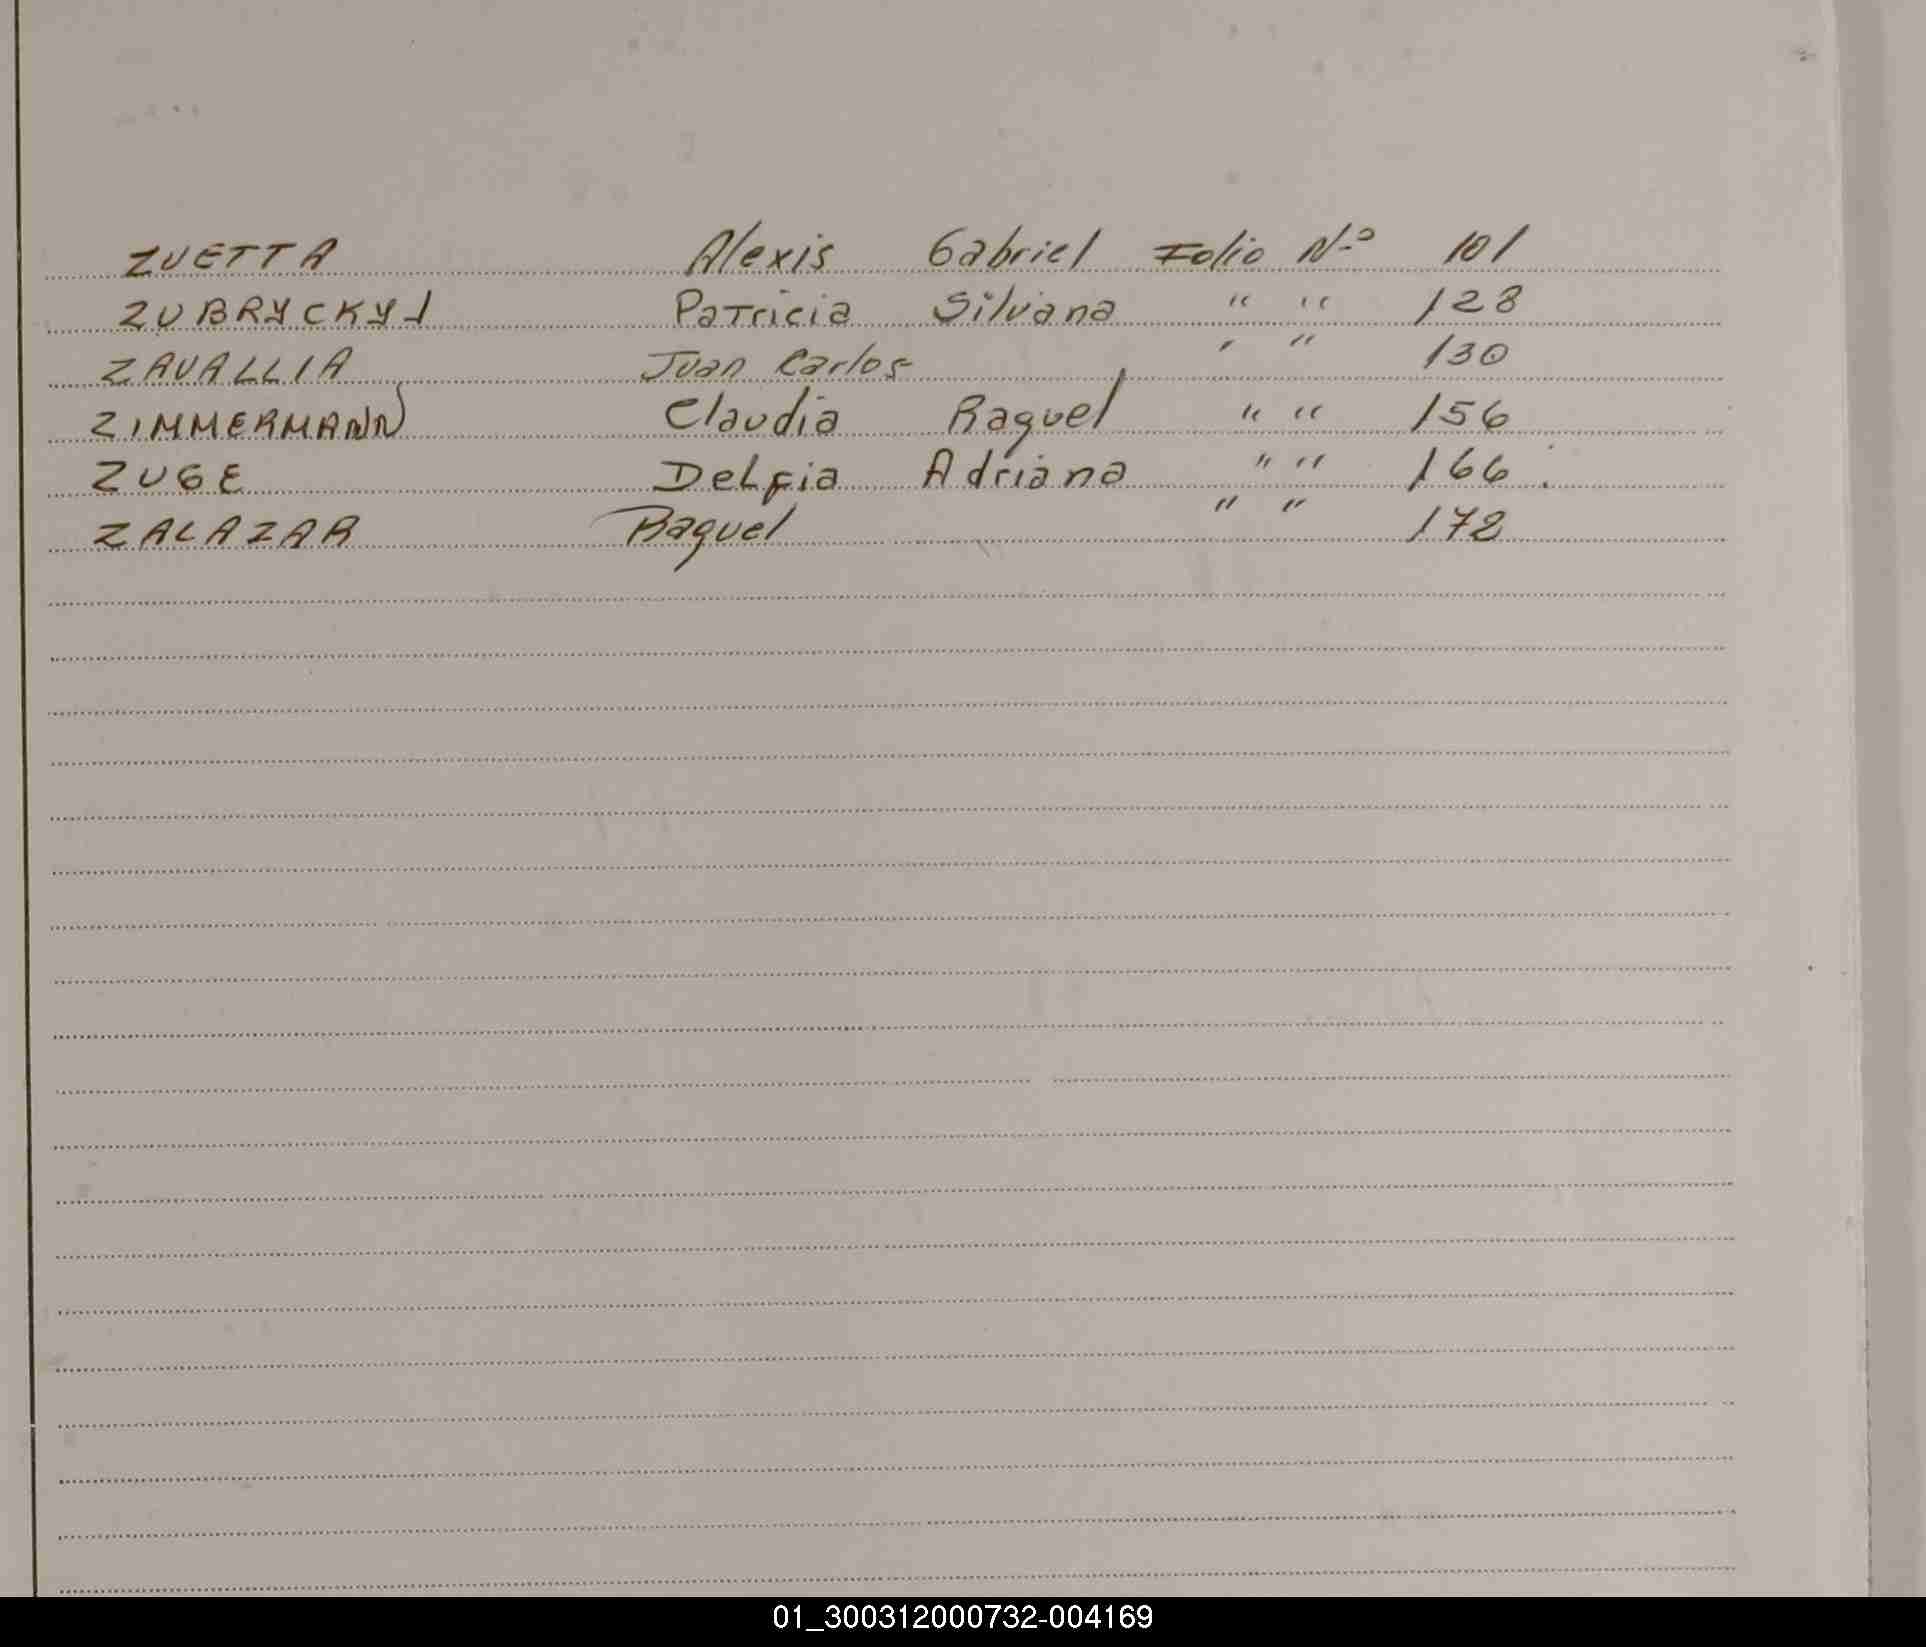 ZUETTA Alexis Gabriel Folio Nº 101
ZUBRYCKYJ Patricia Silviana " " 128
ZAVALLIA Juan Carlos " " 130
ZIMMERMANN Claudia Raquel " " 156
ZUGE Delfia Adriana " " 166.
ZALAZAR Raquel " " 172
01_300312000732-004169